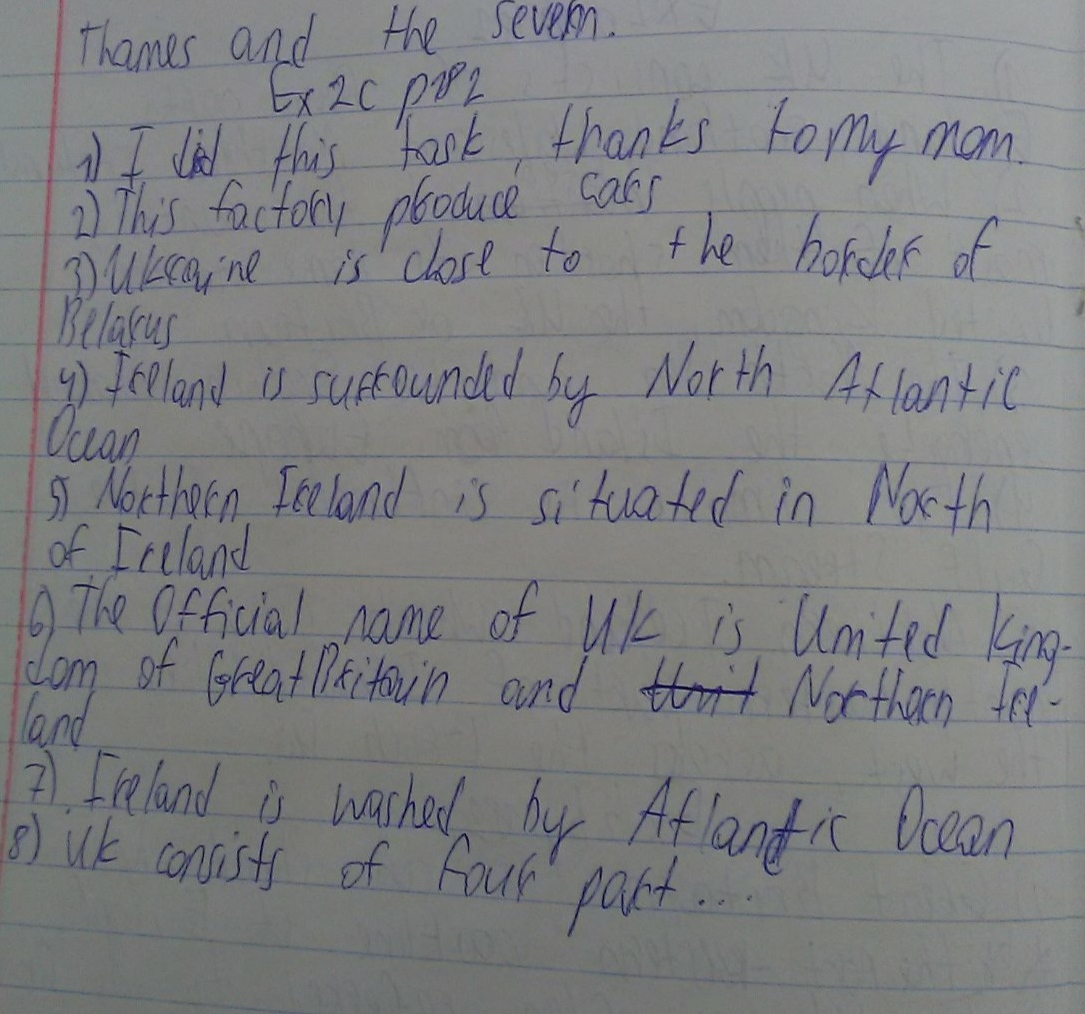 Thames and the Severn.
Ex 2c p182
1) I did this task, thanks to my mom.
2) This factory produce cars
3) Ukraine is close to the border of
Belarus
4) Ireland is surrounded by North Atlantic
Ocean
5) Northern Ireland is situated in North
of Ireland
6) The Official name of UK is United King-
dom of Great Britain and Northern Ire-
land
7) Ireland is washed by Atlantic Ocean
8) UK consists of four part...